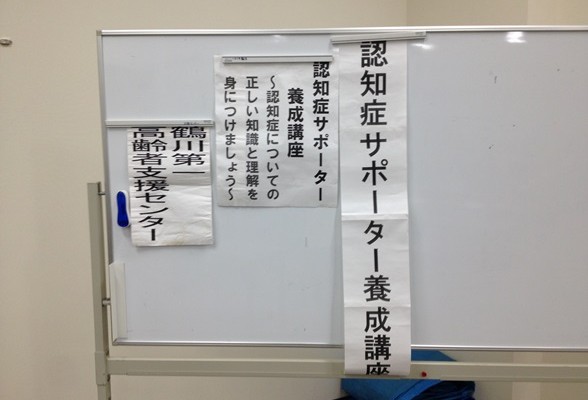 認知症サポーター養成講座
認知症サポーター
養成講座
～認知症についての
正しい知識と理解を
身につけましょう～
鶴川第一
高齢者支援センター